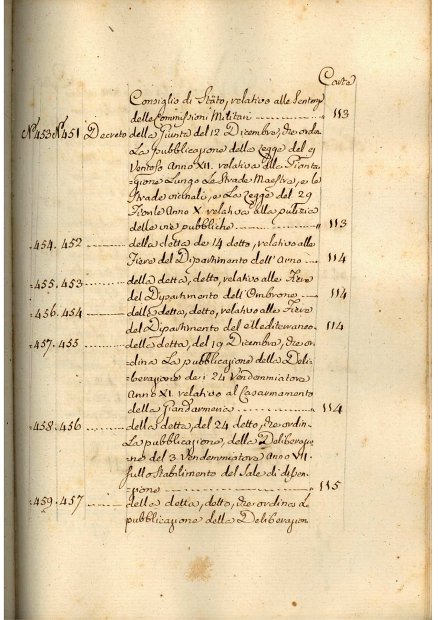 Carte
Consiglio di Stato, relativo alle Sentenze
delle Commissioni Militari 113
N.° 453 N.° 451 Decreto della Giunta del 12 Dicembre, che ordina
La pubblicazione della Legge del 9
Ventoso Anno XII. relativa alle Pianta-
gione Lungo le Strade Maestre, e le
Strade vicinali, e La Legge del 29
Fiorile Anno X relativa alla pulizia
delle vie pubbliche 113
454. 452 della detta de 14 detto, relativo alle
Fiere del Dipartimento dell'Arno 114
455. 453 della detta, detto, relativo alle Fiere
del Dipartimento dell'Ombrone 114
456. 454 della detta, detto, relativo alle Fiere
del Dipartimento del Mediterraneo 114
457. 455 della detta, del 19 Dicembre, che or-
dina La pubblicazione della Deli-
berazione de i 24 Vendemmiatore
Anno XI. relativo al Casarmamento
della Giandarmeria 114
458. 456 della detta, del 24 detto, che ordin.
La pubblicazione, della Deliberazio-
ne del 3 Vendemmiatore Anno VII
sullo Stabilimento del Sale di dispen-
zione 115
459. 457 della detta, detto, che ordina la
pubblicazione della Deliberazion